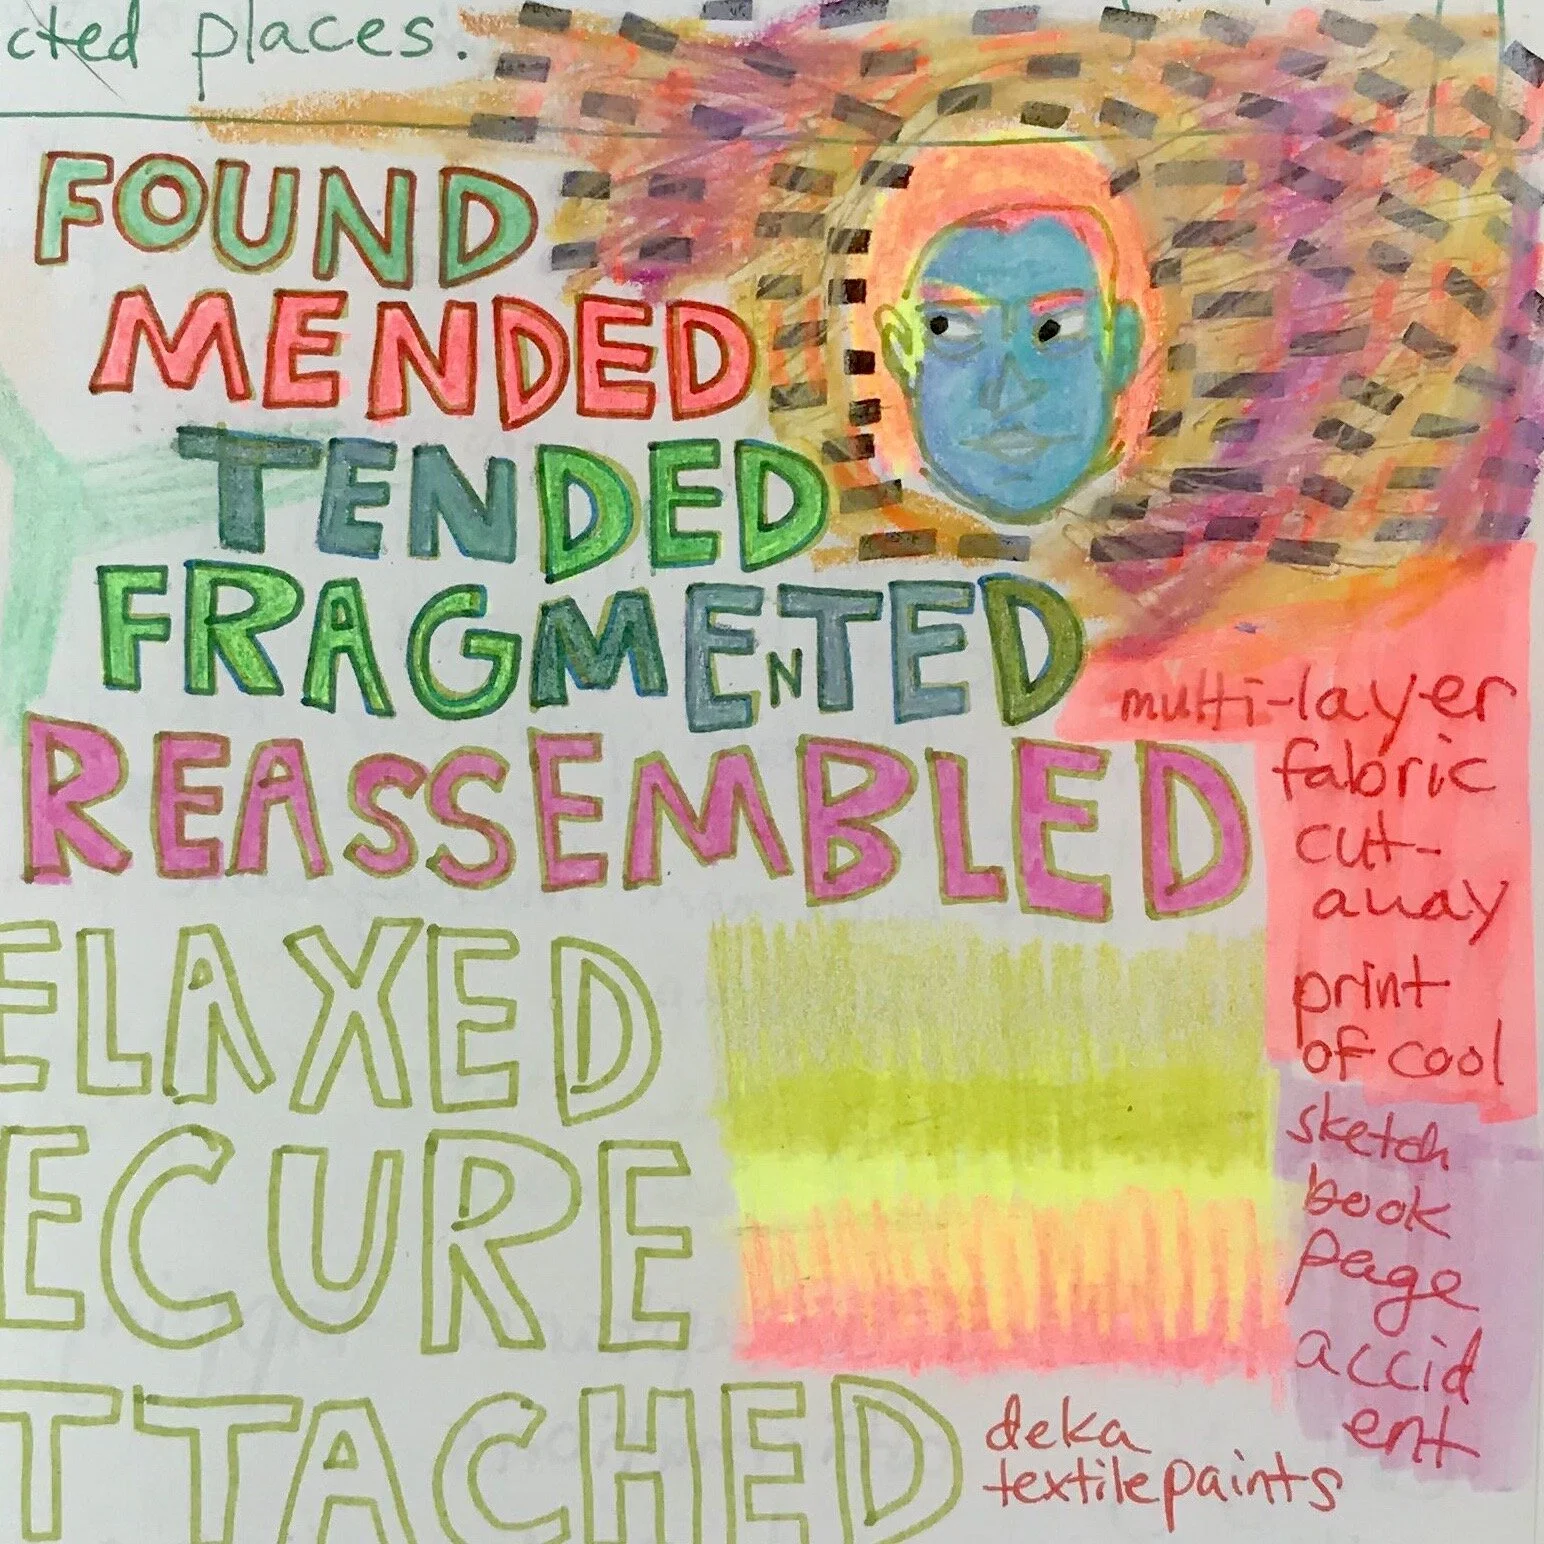 cted places.
FOUND
MENDED
TENDED
FRAGMENTED
REASSEMBLED
ELAXED
ECURE
TTACHED
multi-layer
fabric
cut-
away
print
of cool
sketch
book
page
accid
ent
deka
textile paints